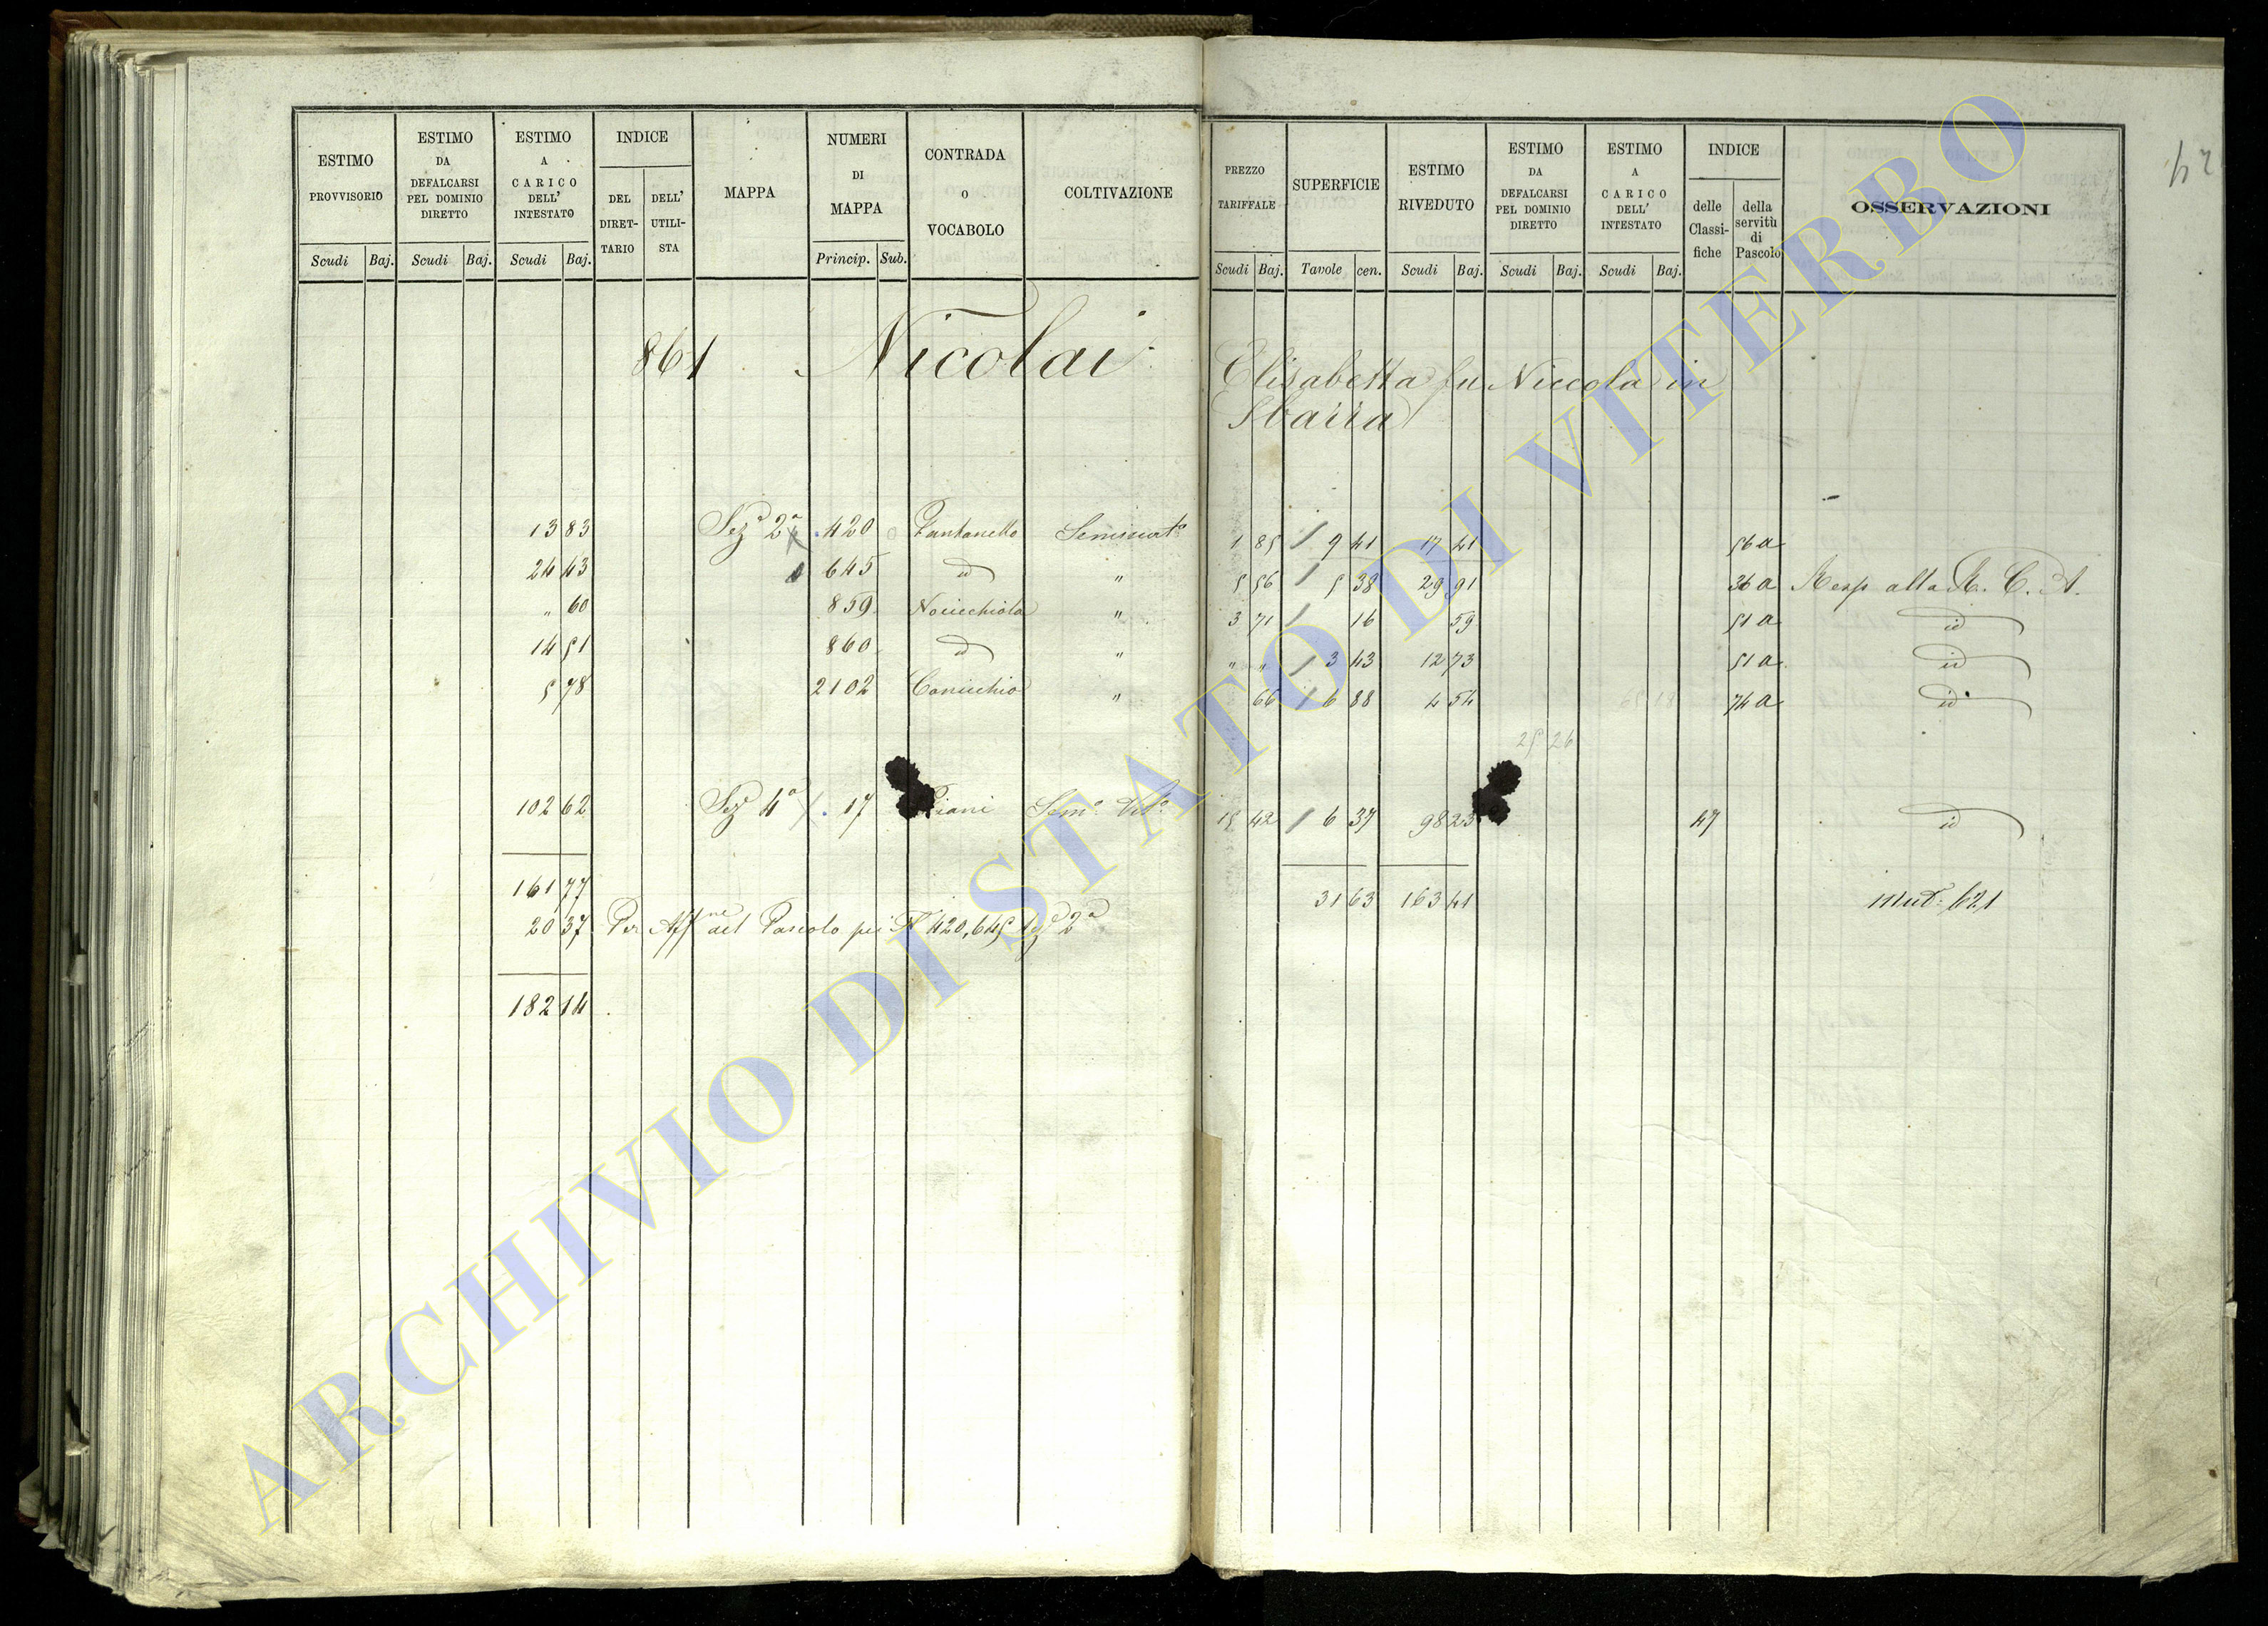 ESTIMO PROVVISORIO | ESTIMO DA DEFALCARSI PEL DOMINIO DIRETTO | ESTIMO A CARICO DELL' INTESTATO | INDICE | MAPPA | NUMERI DI MAPPA | CONTRADA O VOCABOLO | COLTIVAZIONE | PREZZO TARIFFALE | SUPERFICIE | ESTIMO RIVEDUTO | ESTIMO DA DEFALCARSI PEL DOMINIO DIRETTO | ESTIMO A CARICO DELL' INTESTATO | INDICE | OSSERVAZIONI
DEL DIRET-TARIO | DELL' UTILI-STA | delle Classi-fiche | della servitù di Pascolo
Scudi | Baj. | Scudi | Baj. | Scudi | Baj. | Princip. | Sub. | Scudi | Baj. | Tavole | cen. | Scudi | Baj. | Scudi | Baj. | Scudi | Baj.
861 Nicolai Elisabetta fu Niccola in
Sbarra
13 83 Sez.e 2a 420 Pantanello Seminat.o 1 85 9 41 17 41 56a
24 43 645 id " 5 56 5 38 29 91 36a Resp alla R. C. A.
" 60 859 Nocicchiola " 3 71 16 59 51a id
14 51 860 id " " " 3 43 12 73 51a id
5 78 2102 Conicchio " 66 6 88 4 54 74a id
25 26
102 62 Sez.e 4a 17 Piani Sem.o Vit.o 15 42 6 37 98 23 47 id
161 77 31 63 163 41 121
20 37 Per Aff.ne del Pascolo pei N. 420, 645 Sez.e 2a
182 14
ARCHIVIO DI STATO DI VITERBO